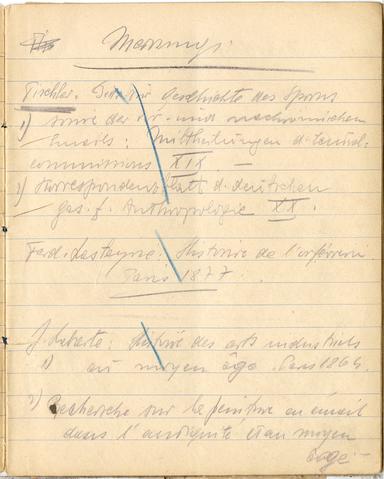 Tischler. Geschichte des Sporns
1) sowie der vor- und nachrömischen
Emails: Mittheilungen d.
commissions XIX. —
2) Korrespondenzblatt d. deutschen
Ges. f. Anthropologie XX.
Ferd. Lasteyrie: Histoire de l'orfévrerie
Paris 1877.
J. Labarte: Histoire des arts industriels
1) au moyen âge. Paris 1864.
2) Recherche sur la peinture en émail
dans l'antiquité et au moyen
âge —